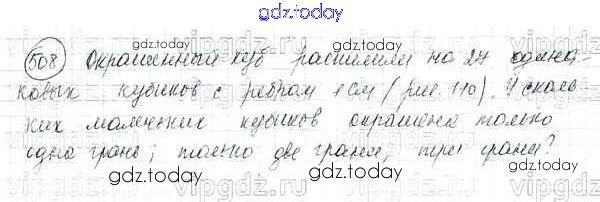 gdz.today
508 Окрашенный куб распилили на 27 одина-
gdz.today
ковых кубиков с ребром 1 см (рис. 110). У сколь-
ких маленьких кубиков окрашена только
одна грань; только две грани, три грани?
gdz.today gdz.today
vipgdz.ru vipgdz.ru vipgdz.ru